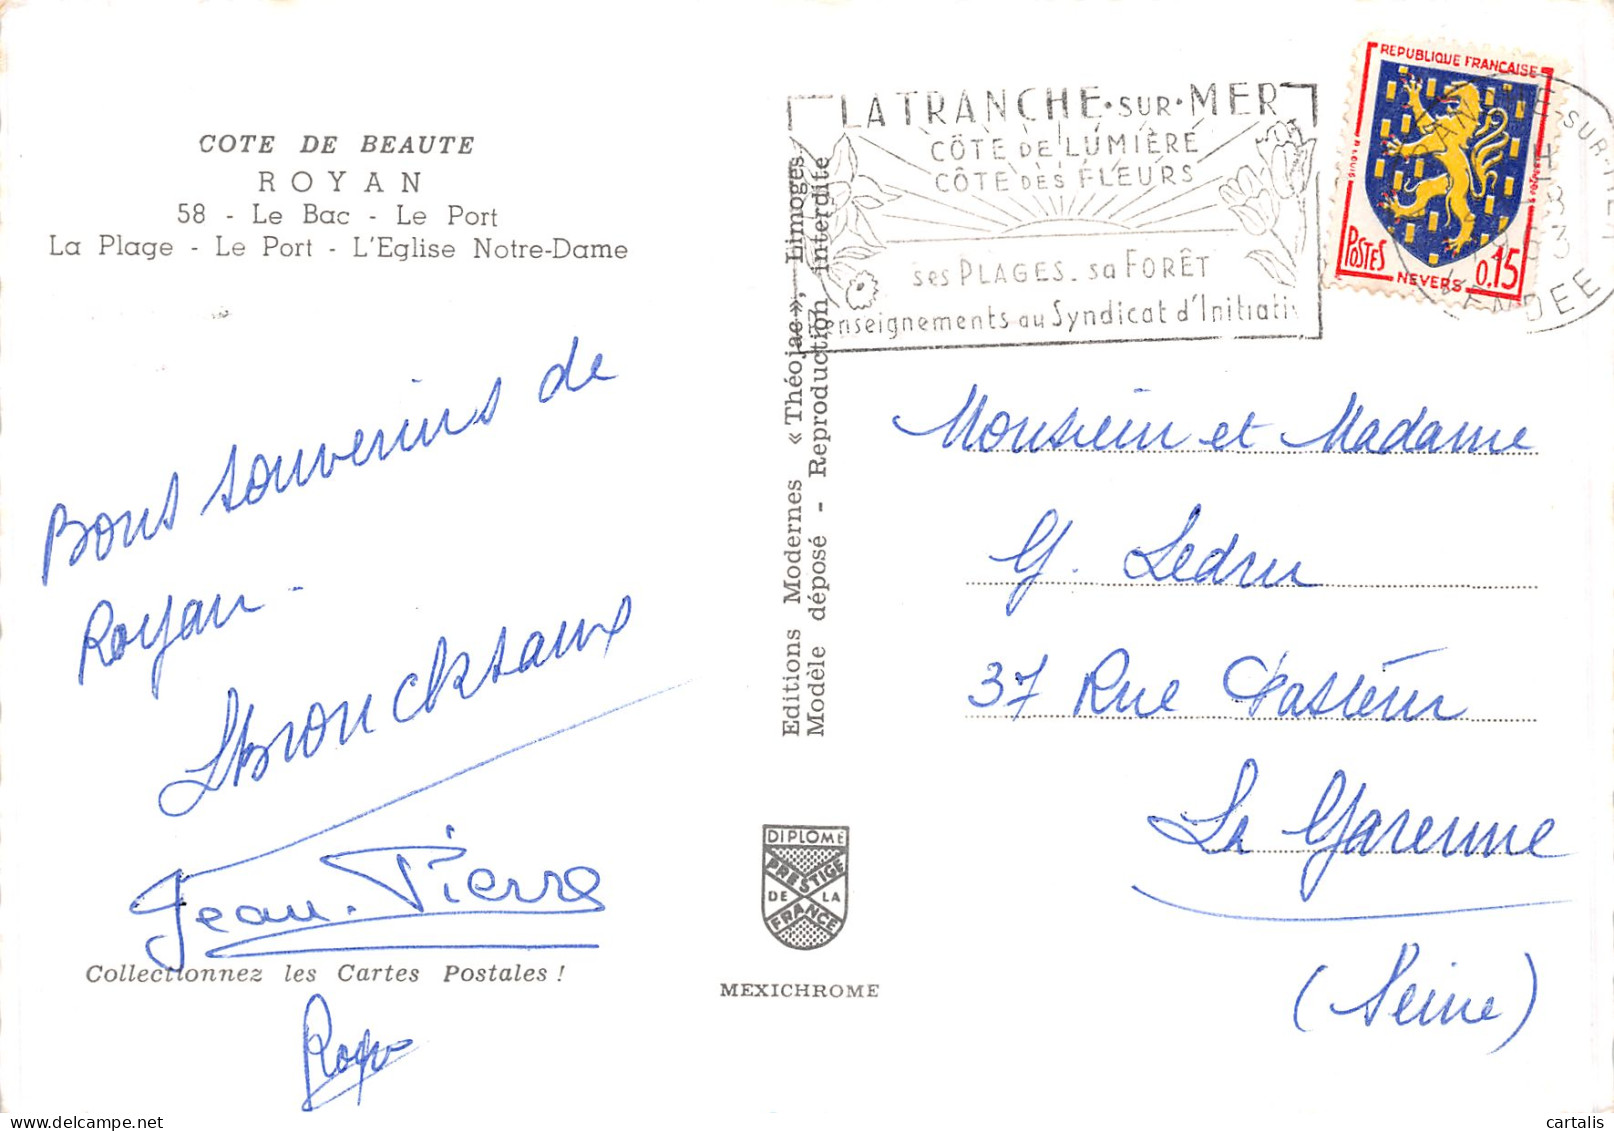 COTE DE BEAUTE
ROYAN
58 - Le Bac - Le Port
La Plage - Le Port - L'Eglise Notre-Dame
Bons souvenirs de
Royan -
Jean-Pierre
Collectionnez les Cartes Postales !
Roger
Editions Modernes « Théojac », Limoges.
Modèle déposé - Reproduction interdite
DIPLOME
PRESTIGE
DE LA
FRANCE
MEXICHROME
LA TRANCHE·SUR·MER
CÔTE DE LUMIÈRE
CÔTE DES FLEURS
ses PLAGES - sa FORÊT
enseignements au Syndicat d'Initiati
REPUBLIQUE FRANCAISE
POSTES
NEVERS
0,15
SUR-MER
VENDEE
Monsieur et Madame
G. Ledru
37 Rue Pasteur
La Garenne
(Seine)
cartalis
www.delcampe.net